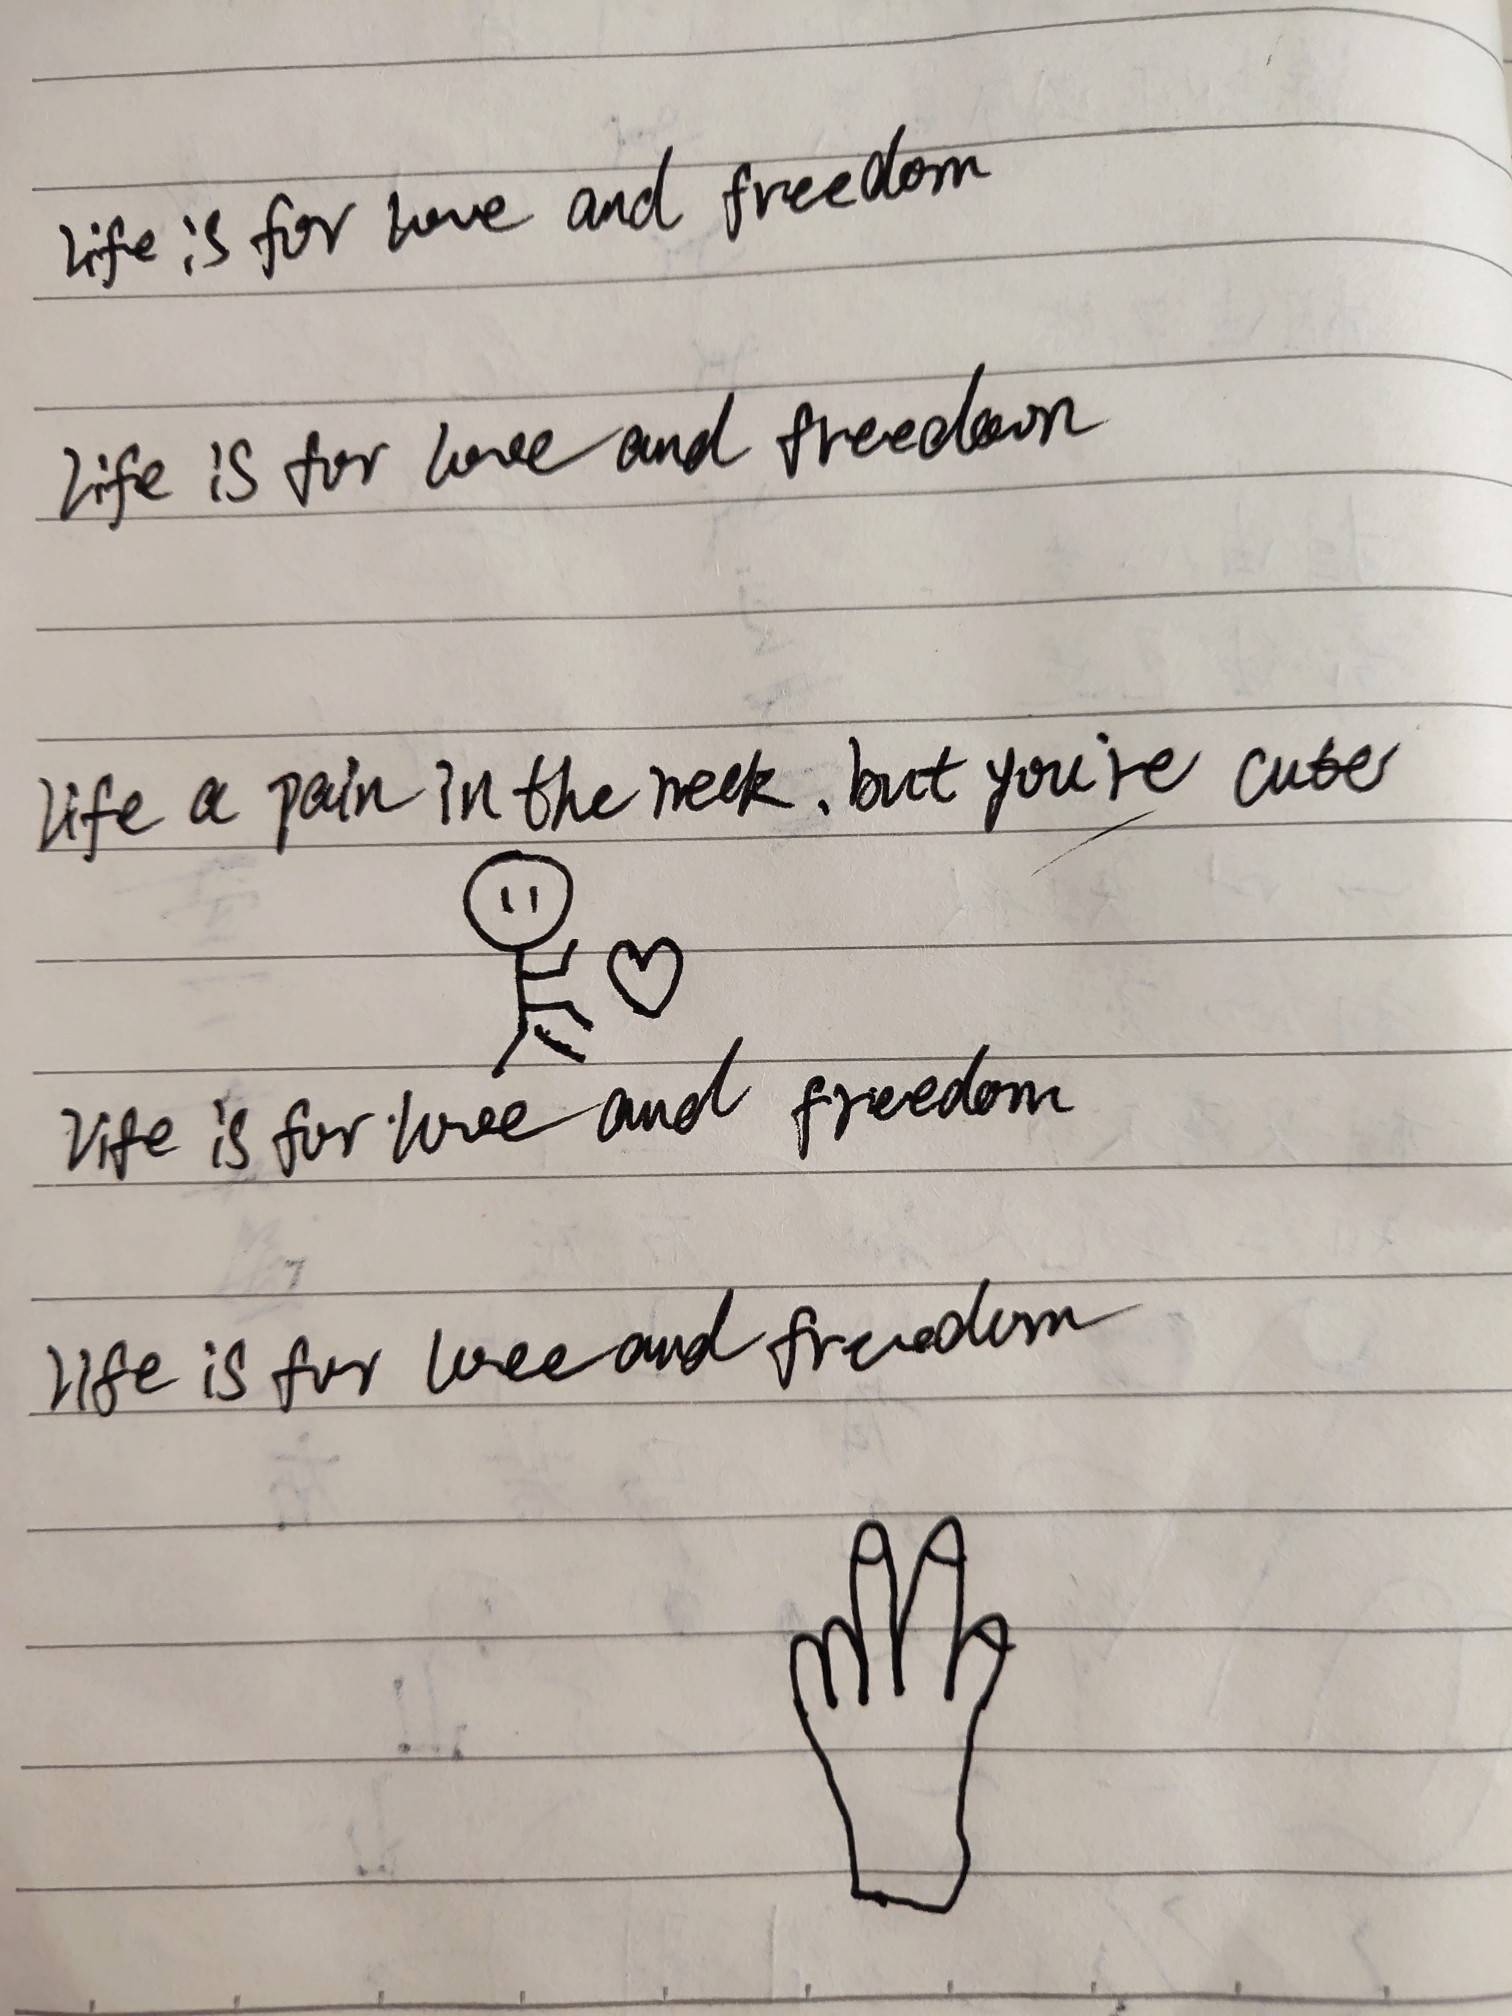 Life is for love and freedom
Life is for love and freedom
Life a pain in the neck, but you're cute
Life is for love and freedom
Life is for love and freedom